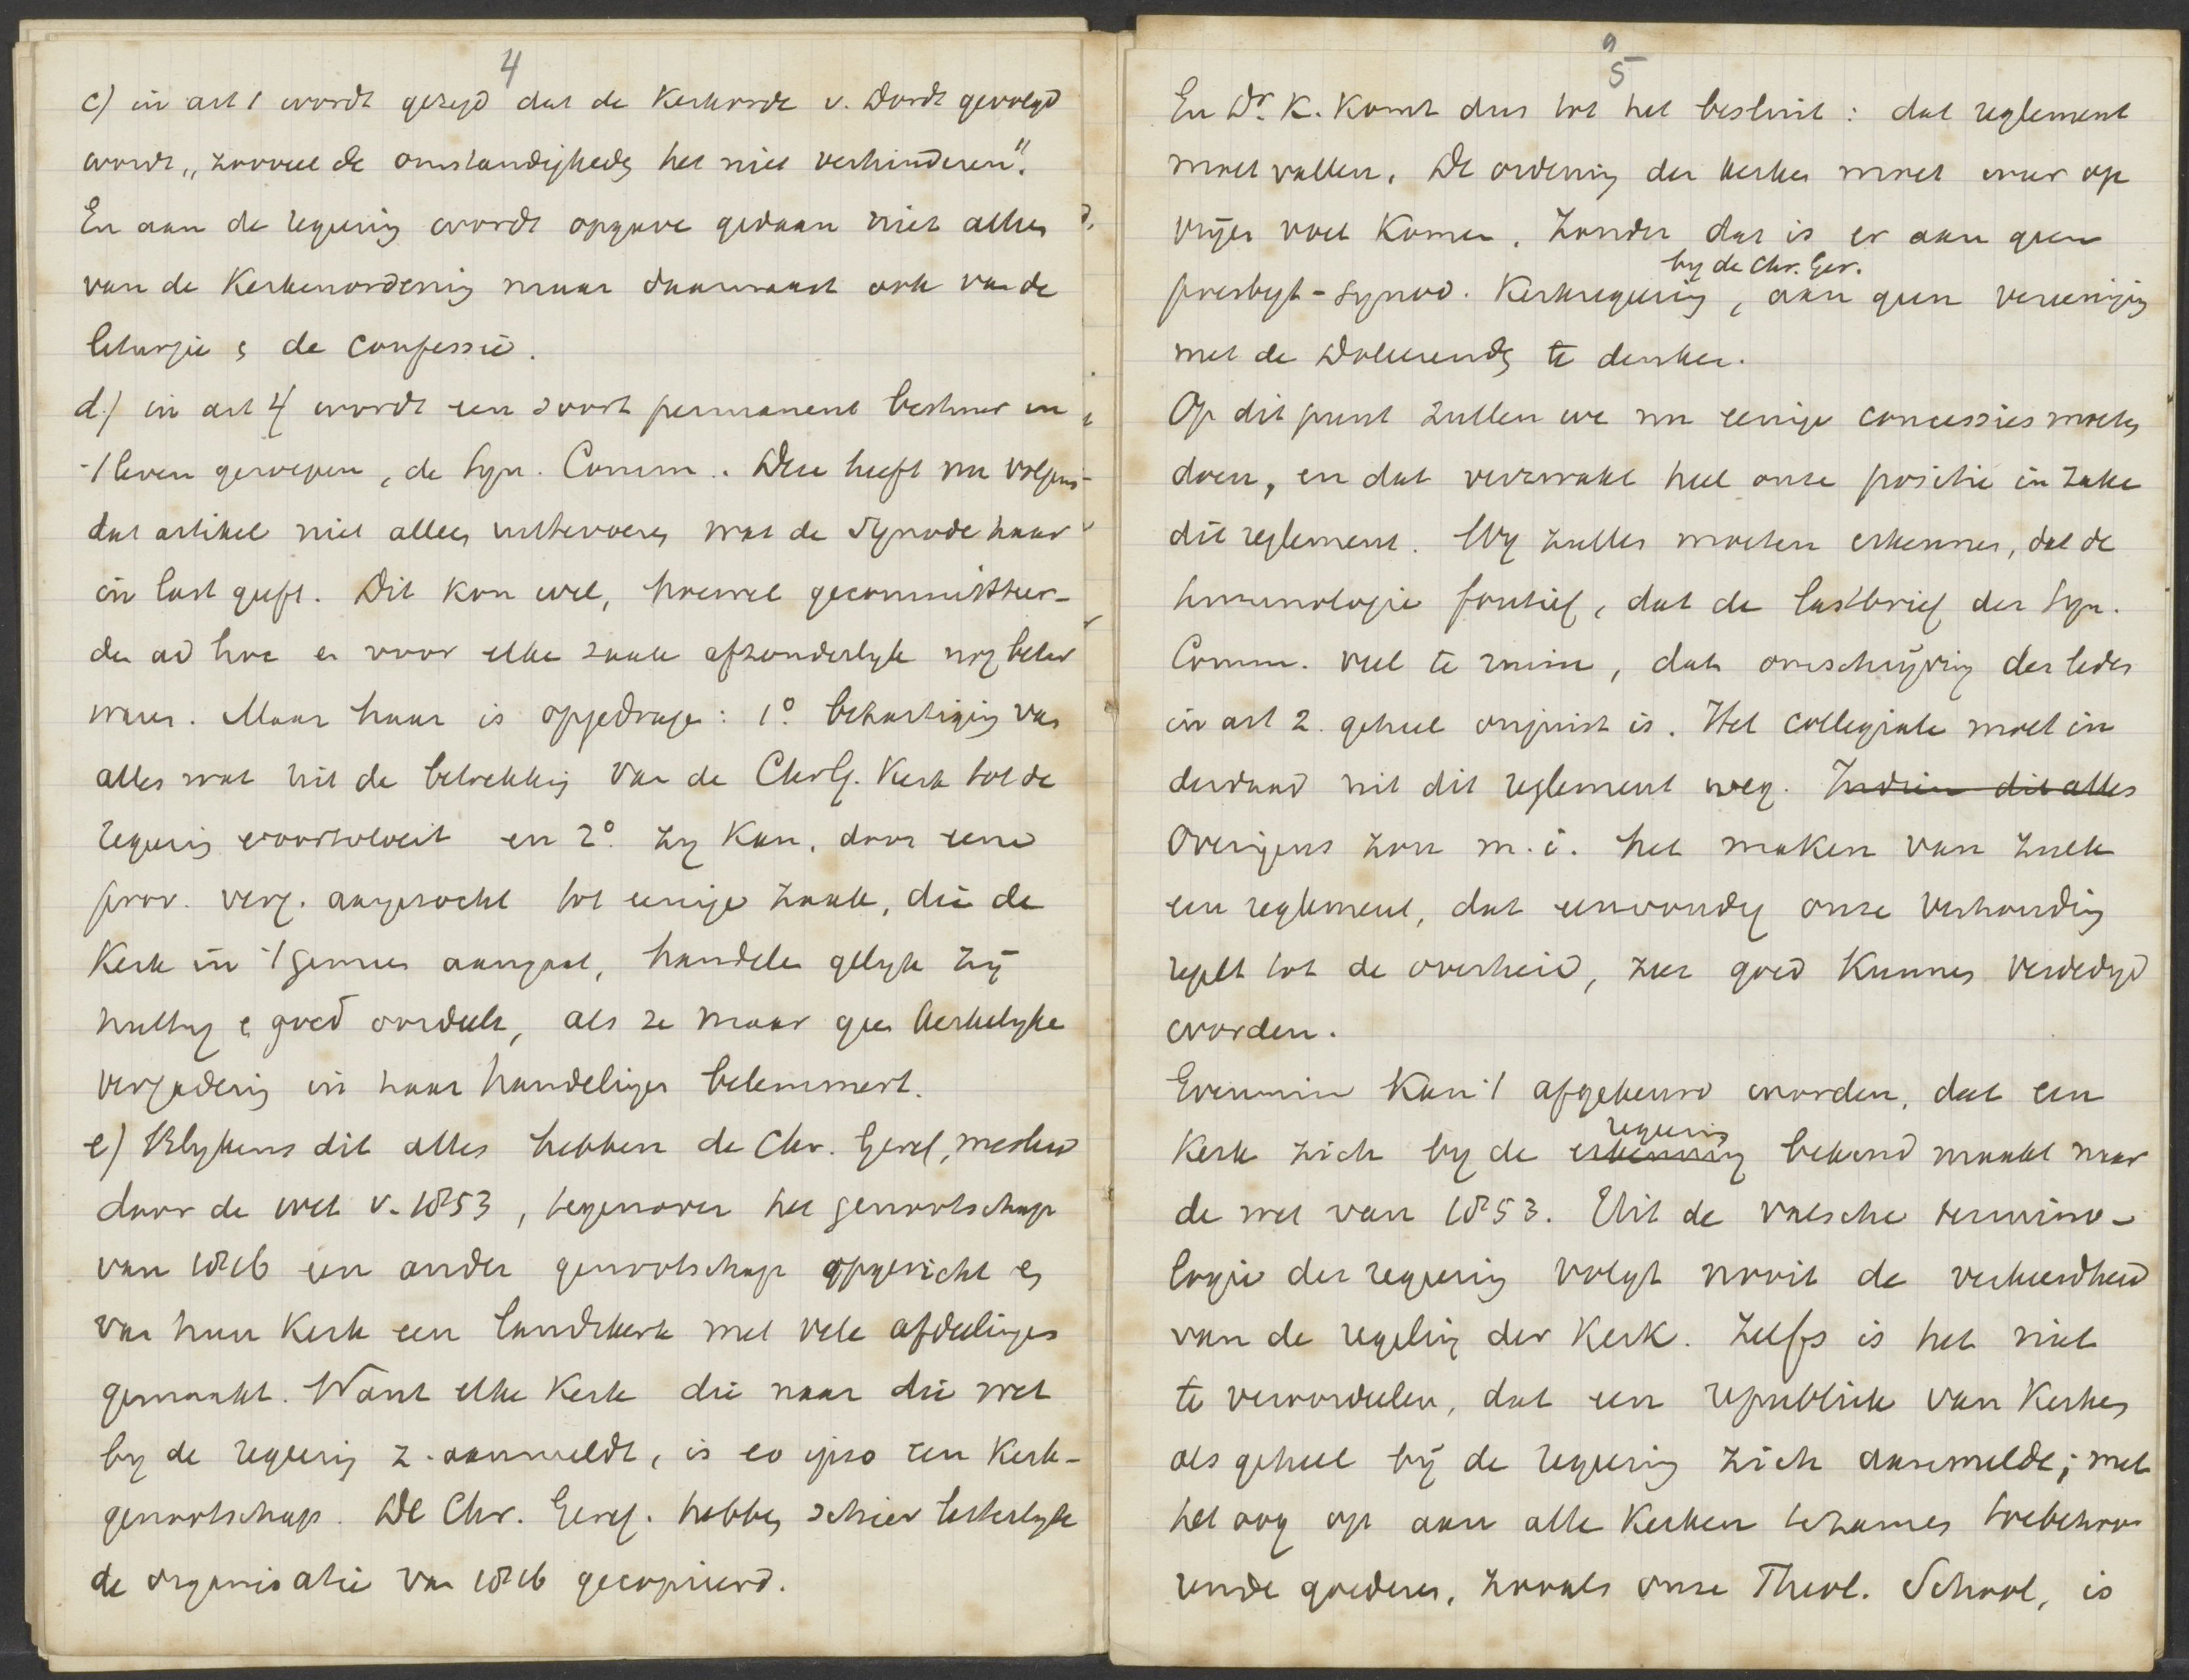 4
c) in art 1 wordt gezegd dat de Kerkorde v. Dordt gevolgd
wordt „zooveel de omstandigheden het niet verhinderen".
En aan de regering wordt opgave gedaan niet alleen
van de Kerkenordening maar daarnaast ook van de
liturgie & de confessie.
d.) in art 4 wordt een soort permanent bestuur in
't leven geroepen, de Syn. Comm.. Deze heeft nu volgens
dat artikel niet alleen uittevoeren wat de Synode haar
in last geeft. Dit kon wel, hoewel gecommitteer-
den ad hoc er voor elke zaak afzonderlyk nog beter
waren. Maar haar is opgedragen: 1° behartiging van
alles wat uit de betrekking van de Chr G. Kerk tot de
regering voortvloeit en 2° zy kan, door eene
prov. verg. aangezocht tot eenige zaak, die de
Kerk in 't gemeen aangaat, handelen gelyk zij
nuttig & goed oordeelt, als ze maar geen kerkelyke
vergadering in haar handelingen belemmert.
e) Blykens dit alles hebben de Chr. Geref, misleid
door de wet v. 1853, tegenover het genootschap
van 1816 een ander genootschap opgericht en
van hun Kerk een landskerk met vele afdeelingen
gemaakt. Want elke Kerk die naar die wet
by de regering z. aanmeldt, is eo ipso een Kerk-
genootschap. De Chr. Geref. hebben schier letterlyk
de organisatie van 1816 gecopieerd.
5
En Dr. K. komt dus tot het besluit: dat reglement
moet vallen. De ordening der kerken moet weer op
vrijen voet komen. Zonder dat is er aan geen
by de Chr. Ger.
presbyt-synod. Kerkregering, aan geen vereeniging
met de Doleerenden te denken.
Op dit punt zullen we nu eenige concessies moeten
doen, en dat verzwakt heel onze positie in zake
dit reglement. Wy zullen moeten erkennen, dat de
terminologie foutief, dat de lastbrief der Syn.
Comm. veel te ruim, dat omschrijving der leden
in art 2. geheel onjuist is. Het collegiale moet in
derdaad uit dit reglement weg. Indien dit alles
Overigens zou m.i. het maken van zulk
een reglement, dat eenvoudig onze verhouding
regelt tot de overheid, zeer goed kunnen verdedigd
worden.
Evenmin kan 't afgekeurd worden, dat een
regering
Kerk zich by de erkenning bekend maakt naar
de wet van 1853. Uit de valsche termino-
logie der regering volgt nooit de verkeerdheid
van de regeling der Kerk. Zelfs is het niet
te veroordeelen, dat een republiek van Kerken
als geheel bij de regering zich aanmelde; met
het oog op aan alle Kerken tezamen toebehoo-
rende goederen, zooals onze Theol. School, is